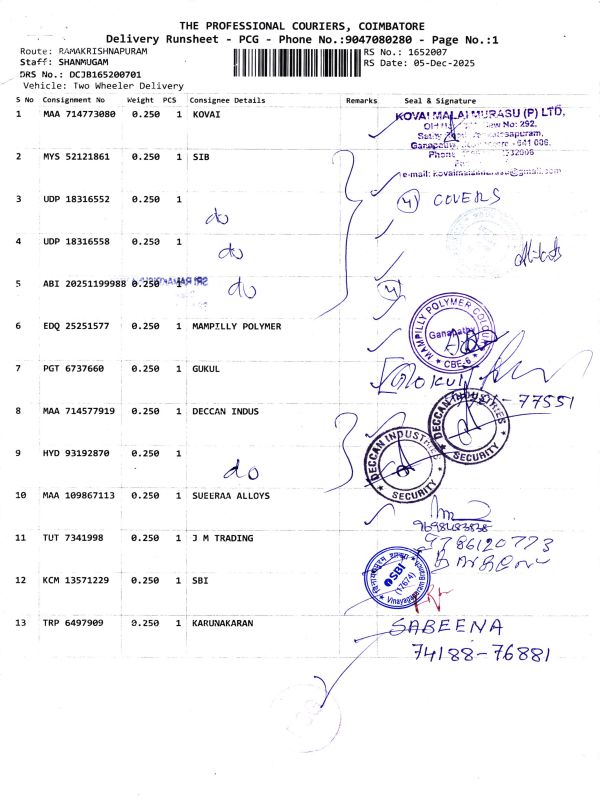 THE PROFESSIONAL COURIERS, COIMBATORE
Delivery Runsheet - PCG - Phone No.:9047080280 - Page No.:1
Route: RAMAKRISHNAPURAM
RS No.: 1652007
Staff: SHANMUGAM
RS Date: 05-Dec-2025
DRS No.: DCJB165200701
Vehicle: Two Wheeler Delivery
S No Consignment No Weight PCS Consignee Details Remarks Seal & Signature
1 MAA 714773080 0.250 1 KOVAI
KOVAI MALAI MURASU (P) LTD,
New No: 292,
Ganapathy, 641 006.
Phone
e-mail:
2 MYS 52121861 0.250 1 SIB
3 UDP 18316552 0.250 1
do
(4) COVERS
4 UDP 18316558 0.250 1
do
5 ABI 20251199988 0.250 1
do
(4)
6 EDQ 25251577 0.250 1 MAMPILLY POLYMER
MAMPILLY POLYMER COLOUR
Ganapathy
CBE-6
7 PGT 6737660 0.250 1 GUKUL
77551
8 MAA 714577919 0.250 1 DECCAN INDUS
DECCAN INDUSTRIES
SECURITY
9 HYD 93192870 0.250 1
do
DECCAN INDUSTRIES
SECURITY
10 MAA 109867113 0.250 1 SUEERAA ALLOYS
11 TUT 7341998 0.250 1 J M TRADING
9786120773
12 KCM 13571229 0.250 1 SBI
SBI
(17674)
13 TRP 6497909 0.250 1 KARUNAKARAN
SABEENA
74188-76881